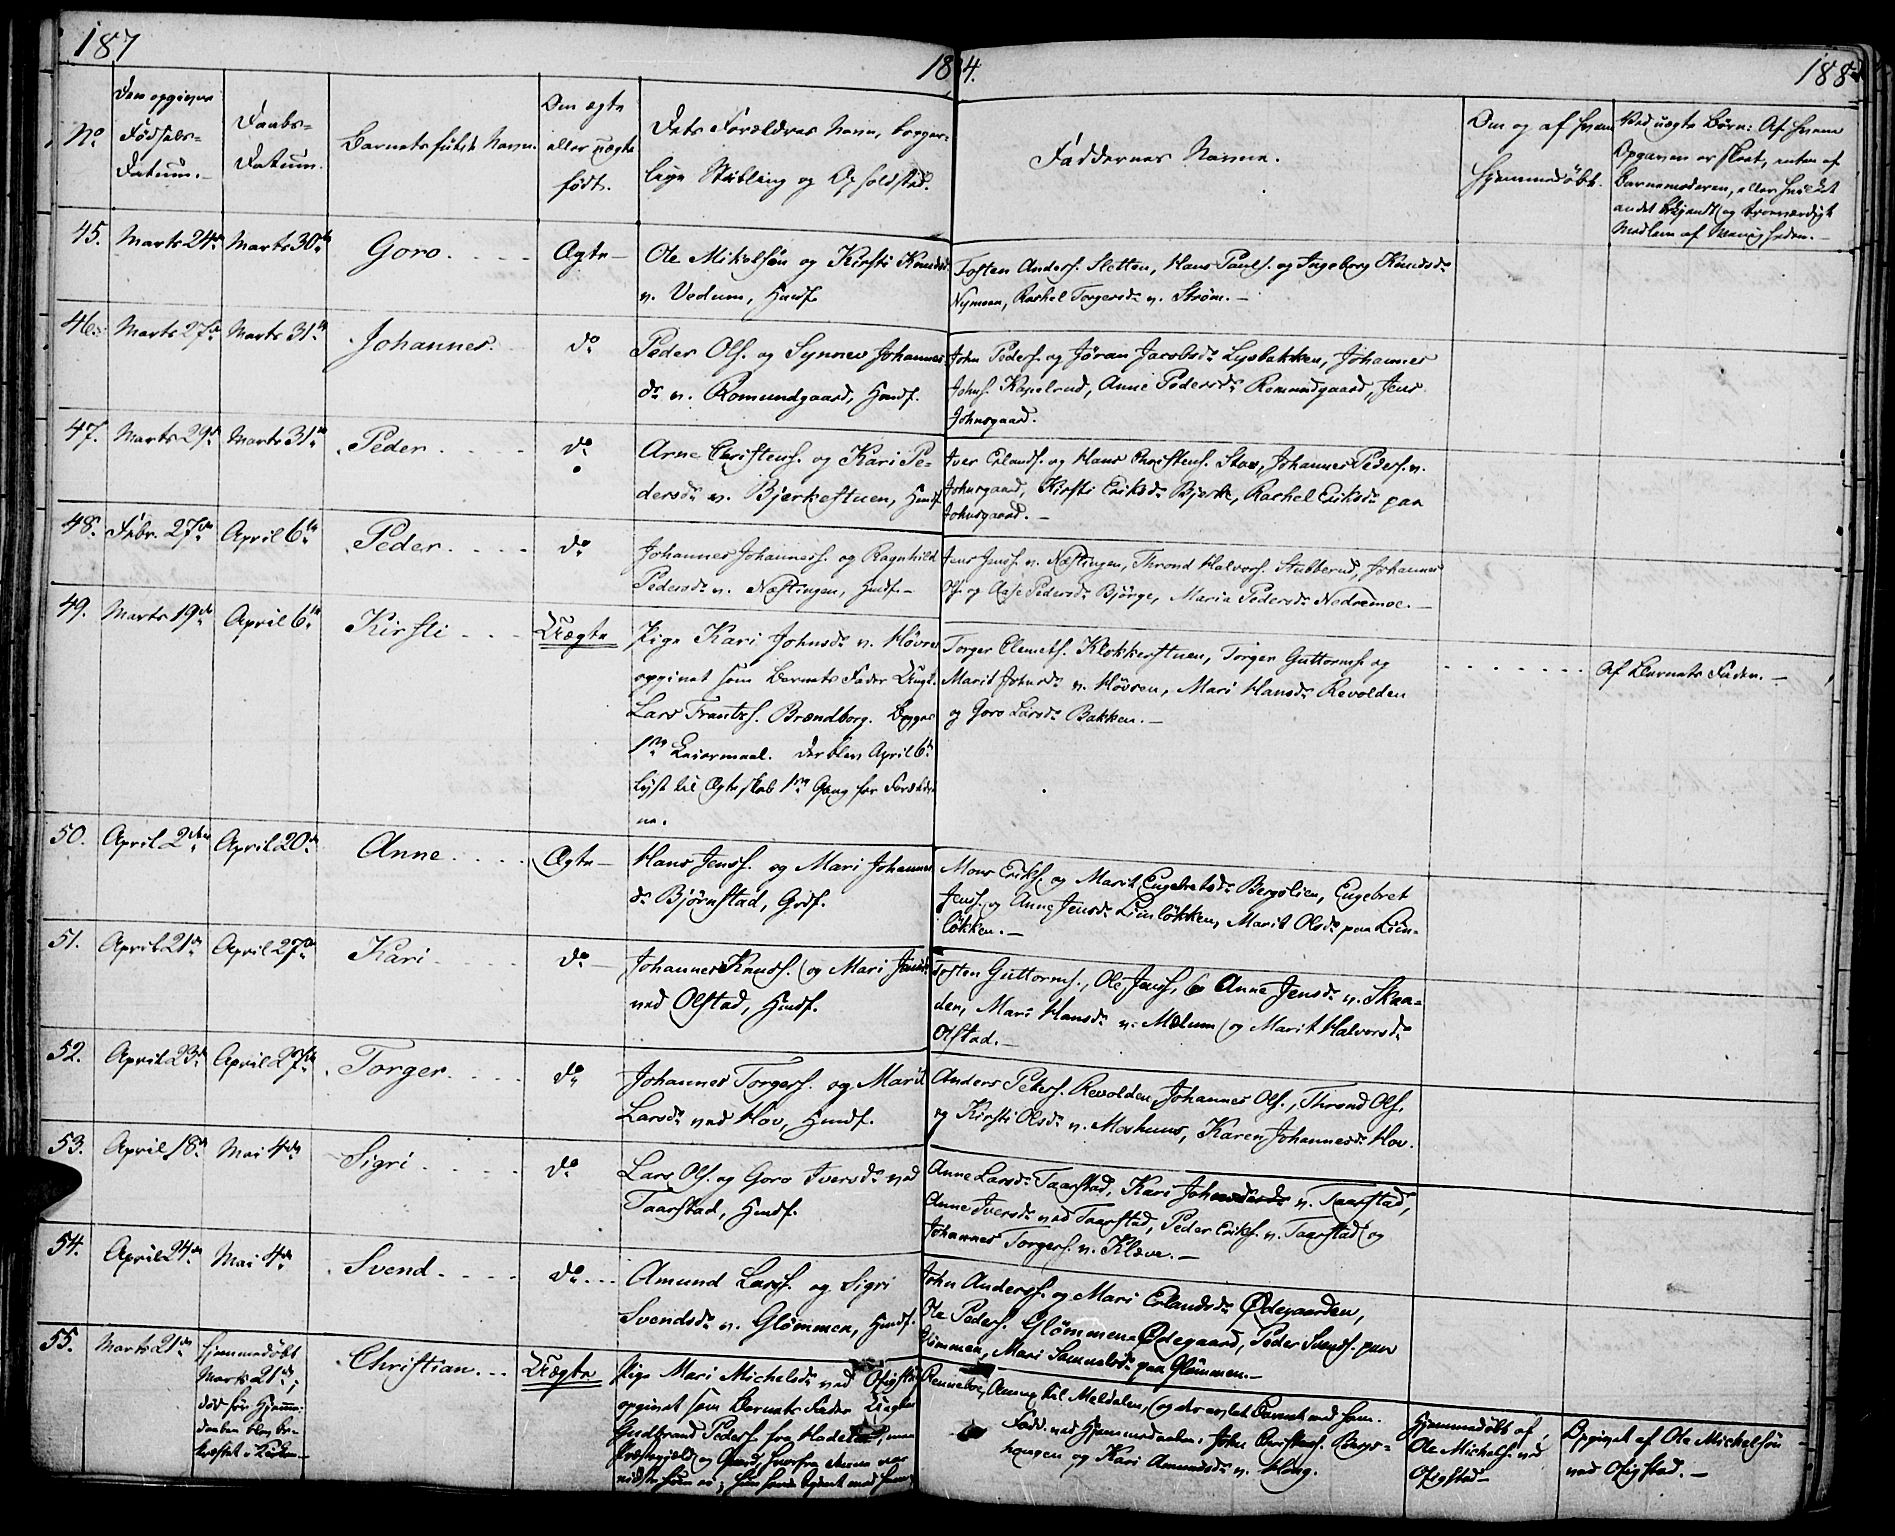 187
18 4.
188
No
Den opgivne Fødsels-Datum.
Daabs-Datum.
Barnets fulde Navn.
Om ægte eller uægte født.
Dets Forældres Navn, borgerlige Stilling og Opholdsted.
Faddernes Navne.
Om og af hvem hjemmedøbt.
Ved uægte Børn: Af hvem Opgaven er skeet, enten af Barnemoderen, eller hvilket andet bekjendt og troværdigt Medlem af Menigheden.
45. Marts 24de Marts 30te Goro. Ægte Ole Mikelsøn og Kirsti Knudsdr
v. Vedum, Huusf.
Tosten Anders. Sletten, Hans Pauls. og Ingeborg Knudsdr
Nymoen, Rachel Torgersdr v. Strøm.
46. Marts 27de Marts 31te Johannes. do Peder Ols. og Synnev Johannes
dr v. Romundgaard, Huusf.
John Peders. og Jøran Jacobsdr Lysbakken, Johannes
Johns. Kapelrud, Anne Pedersdr Romundgaard, Jens
Johnsgaard.
47. Marts 29de Marts 31te Peder. do Arne Christens. og Kari Pe-
dersdr v. Bjerkestuen, Huusf.
Iver Erlands. og Hans Christens. Stav, Johannes Peders. v.
Johnsgaard, Kirsti Eriksdr Bjerke, Rachel Eriksdr paa
Johnsgaard.
48. Febr. 27de April 6te Peder. do Johannes Johanness. og Ragnhild
Pedersdr v. Næstingen, Huusf.
Jens Jens. v. Næstingen, Thrond Halvors. Stubberud, Johannes
Ols. og Aase Pedersdr Bjørge, Maria Pedersdr Nedremoe.
49. Marts 19de April 6te Kirsti Uægte Pige Kari Johnsdr v. Høvren
opgivet som Barnets Fader Ungk.
Lars Frants. Brændborg. Begges
1ste Leiermaal. Der blev April 6te
lyst til Ægteskab 1ste Gang for Forældre-
ne.
Torger Clemets. Klokkerstuen, Torger Guttorms. og
Marit Johnsdr v. Høvren, Mari Hansdr Revolden
og Goro Larsdr Bakken.
Af Barnets Fader.
50. April 2den April 20de Anne. Ægte Hans Jens. og Mari Johannes
dr Bjørnstad, Grdf.
Mons Eriks. og Marit Engebretsdr Bergolien, Engebret
Jens. og Anne Jensdr Lunløkken, Marit Olsdr paa Lun-
løkken.
51. April 21de April 27de Kari do Johannes Knuds. og Mari Jensdr
ved Olstad, Huusf.
Tosten Guttorms., Ole Jens., og Anne Jensdr v. Skaa-
den, Mari Hansdr v. Mælum og Marit Halvorsdr
Olstad.
52. April 23de April 27de Torger. do Johannes Torgers. og Marit
Larsdr ved Hov, Huusf.
Anders Peters. Revolden, Johannes Ols., Thrond Ols.
og Kirsti Olsdr v. Moshuus, Karen Johannesdr Hov.
53. April 18de Mai 4de Sigri. do Lars Ols. og Goro Iversdr ved
Taarstad, Huusf.
Anne Larsdr Taarstad, Kari v. Taarstad,
Anne Iversdr ved Taarstad, Peder Eriks. v. Taarstad og
Johannes Torgers. v. Kleve.
54. April 24de Mai 4de Svend. do Amund Lars. og Sigri
Svendsdr v. Glømmen, Huusf.
John Anders. og Mari Erlandsdr Ødegaarden,
Ole Peders. Glømmens Ødegaard, Peder Svends. paa
Glømmen, Mari Samuelsdr paa Glømmen.
55. Marts 21de Hjemmedøbt
Marts 21de;
død før Hjemme-
daaben blev be-
kræftet i Kirken
Christian. Uægte Pige Mari Michelsdr ved Ofigstad
opgivet som Barnets Fader Ungkarl
Gudbrand Peders. fra Hadeland, men
Præstegjeld og Gaard, hvorfra denne var
vidste hun ei; hun havde tjent med ham
Rennebo, Annex til Meldalen, og der avlet Barnet med ham.
Fadd. ved Hjemmedaaben: John Christens. Bergs-
haugen og Kari Amundsdr v. Haug.
Hjemmedøbt af
Ole Michels. ved
Ofigstad
Opgivet af Ole Michelsøn
ved Ofigstad.